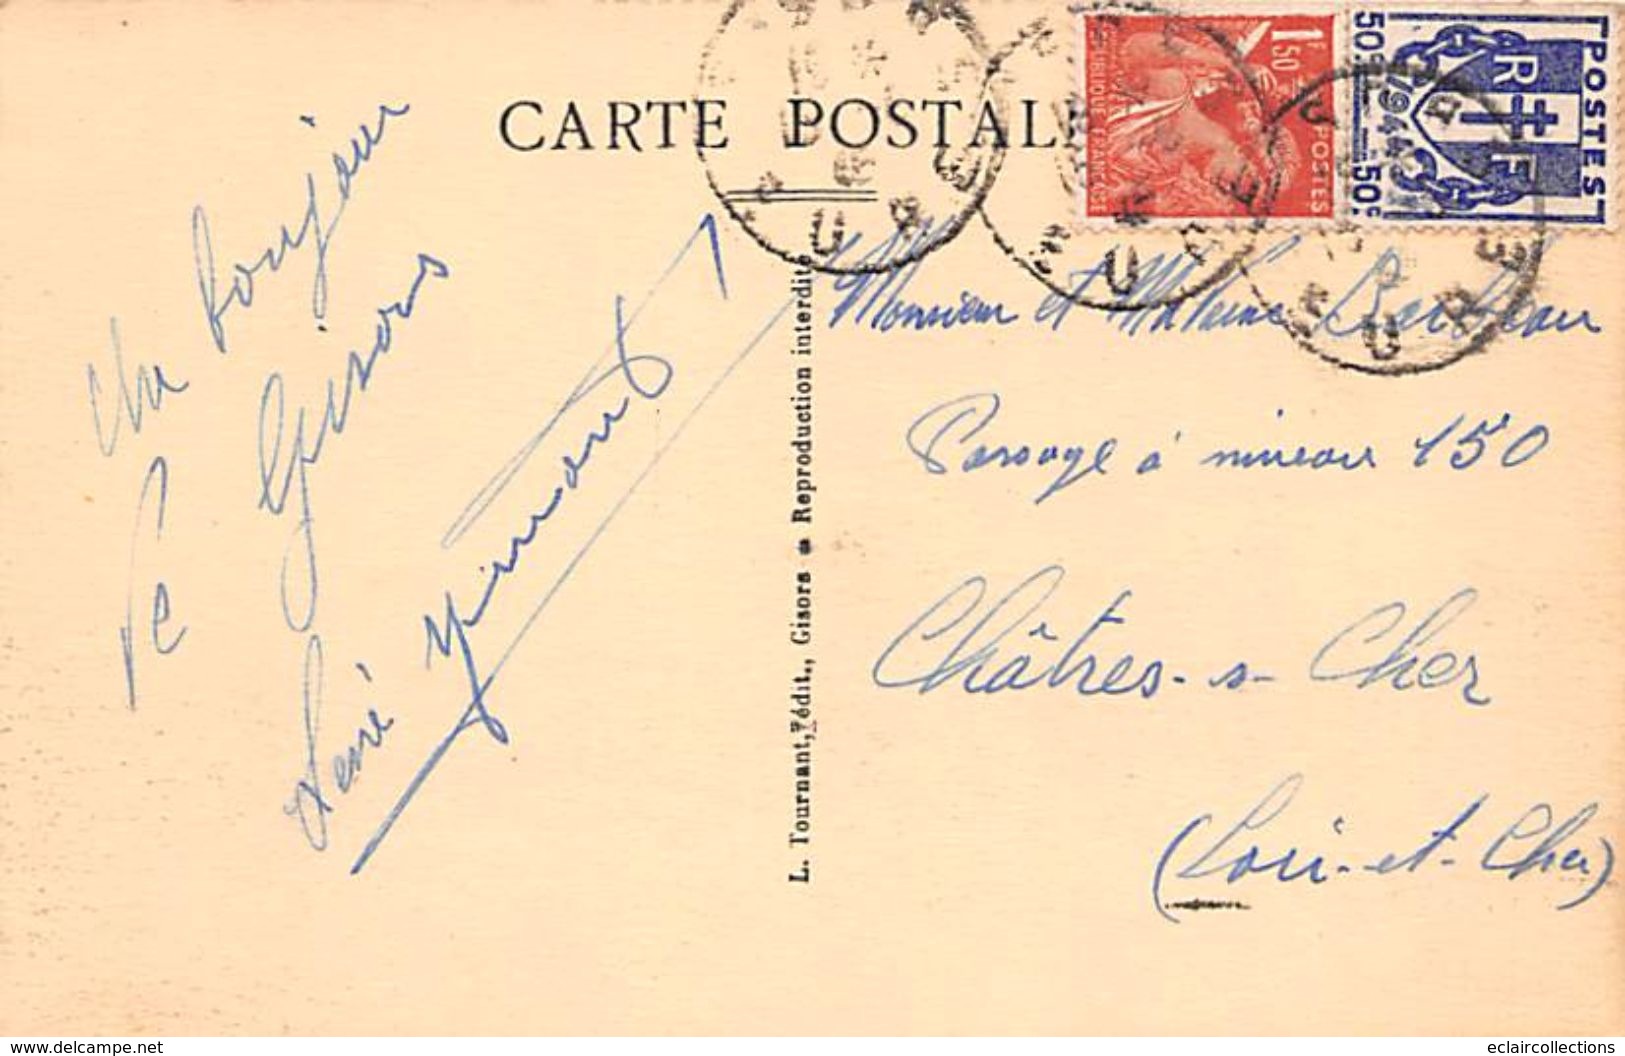 CARTE POSTALE
1F50
POSTES
RÉPUBLIQUE FRANÇAISE
POSTES
50c
50c
RF
1944
Un bonjour
de
Gisors
René
L. Tournant, édit., Gisors Reproduction interdite
Monsieur et Madame
Passage à niveau 150
Châtres-s-Cher
(Loir-et-Cher)
www.delcampe.net
eclaircollections